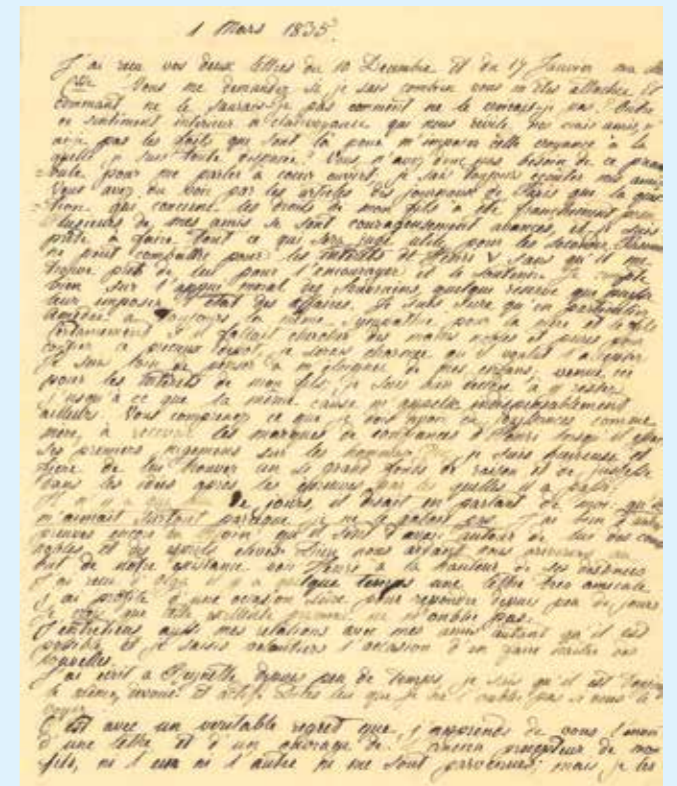 1 Mars 1835.
J'ai reçu vos deux lettres du 10 Decembre et du 17 Janvier ma
Vous me demandez si je sais combien vous m'etes attachée et
comment ne le saurais-je pas comment ne le
ce sentiment interieur de clairvoyance qui nous revele nos vrais amis, n'
ai-je pas les faits qui sont là pour m'imposer cette croyance à la
quelle je suis toute disposée! Vous n'avez donc pas besoin de ce pream
bule pour me parler à coeur ouvert, je sais toujours ecouter mes amis
Vous avez du voir par les articles des journaux de Paris que la ques
tion qui concerne les droits de mon fils a été franchement
Plusieurs de mes amis se sont courageusement avancés, et je suis
prête à faire tout ce qui sera jugé utile pour les seconder, Personne
ne peut combattre pour les interêts de Henri V sans qu'il me
trouve près de lui pour l'encourager et le soutenir. Je compte
bien sur l'appui moral des Souverains, quelque reserve que
leur impose l'état des affaires. Je suis sure qu'en particulier
a toujours la même sympathie pour la mère et le fils
Certainement s'il fallait chercher des mains nobles et pures pour
confier ce precieux depot, je serais charmée qu'il voulut l'accepter
Je suis loin de penser à m'eloigner de mes enfans, venue ici
pour les interêts de mon fils, je suis bien decidée à y rester
jusqu'à ce que la même cause m'appelle indispensablement
ailleurs. Vous comprenez ce que je dois
mère, à recevoir les marques de confiances d'Henri lorsqu'il
ses premiers jugemens sur les hommes je suis heureuse et
fière de lui trouver un si grand fonds de raison et de justesse
dans les idées après les epreuves par les quelles il a passé.
Il n'y a que de jours, il disait en parlant de moi qu'il
m'aimait surtout parceque je ne le gatois pas. J'ai bien
encore besoin qu'il sent d'avoir autour de lui des
nobles et des esprits elevés. Dieu nous aidant nous arriverons au
but de notre existance voir Henri à la hauteur de ses destinées
J'ai reçu d'Olga il y a quelque temps une lettre bien amicale
j'ai profité d'une occasion sûre pour repondre depuis peu de jours
Je vois que cette ne m'oublie pas.
J'entretiens aussi mes relations avec mes amis autant qu'il est
possible et je saisis volontiers l'occasion d'en faire
nouvelles.
J'ai ecrit à depuis peu de temps, je sais qu'il est toujours
le même, et actif. Dites lui que je ne l'oublie pas si vous le
voyez
C'est avec un veritable regret que j'apprends de vous l'envoi
d'une lettre et d'un ouvrage de l'ancien precepteur de mon
fils, ni l'un ni l'autre ne me sont parvenues; mais, je les